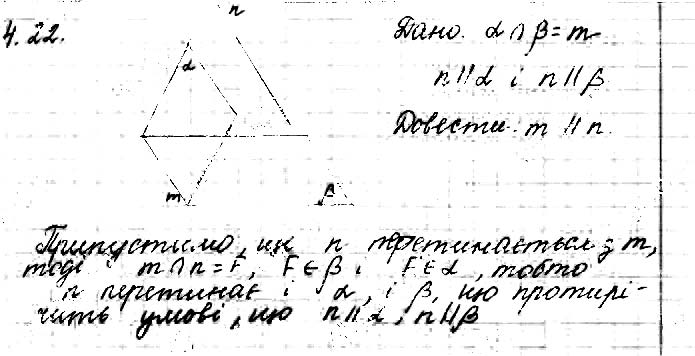 4.22.
n
Дано: α ∩ β = m
n || α і n || β
Довести: m || n.
α
m
β
Припустимо, що n перетинається з m,
тоді m ∩ n = F, F ∈ β і F ∈ α, тобто
n перетинає і α, і β, що протирі-
чить умові, що n || α і n || β